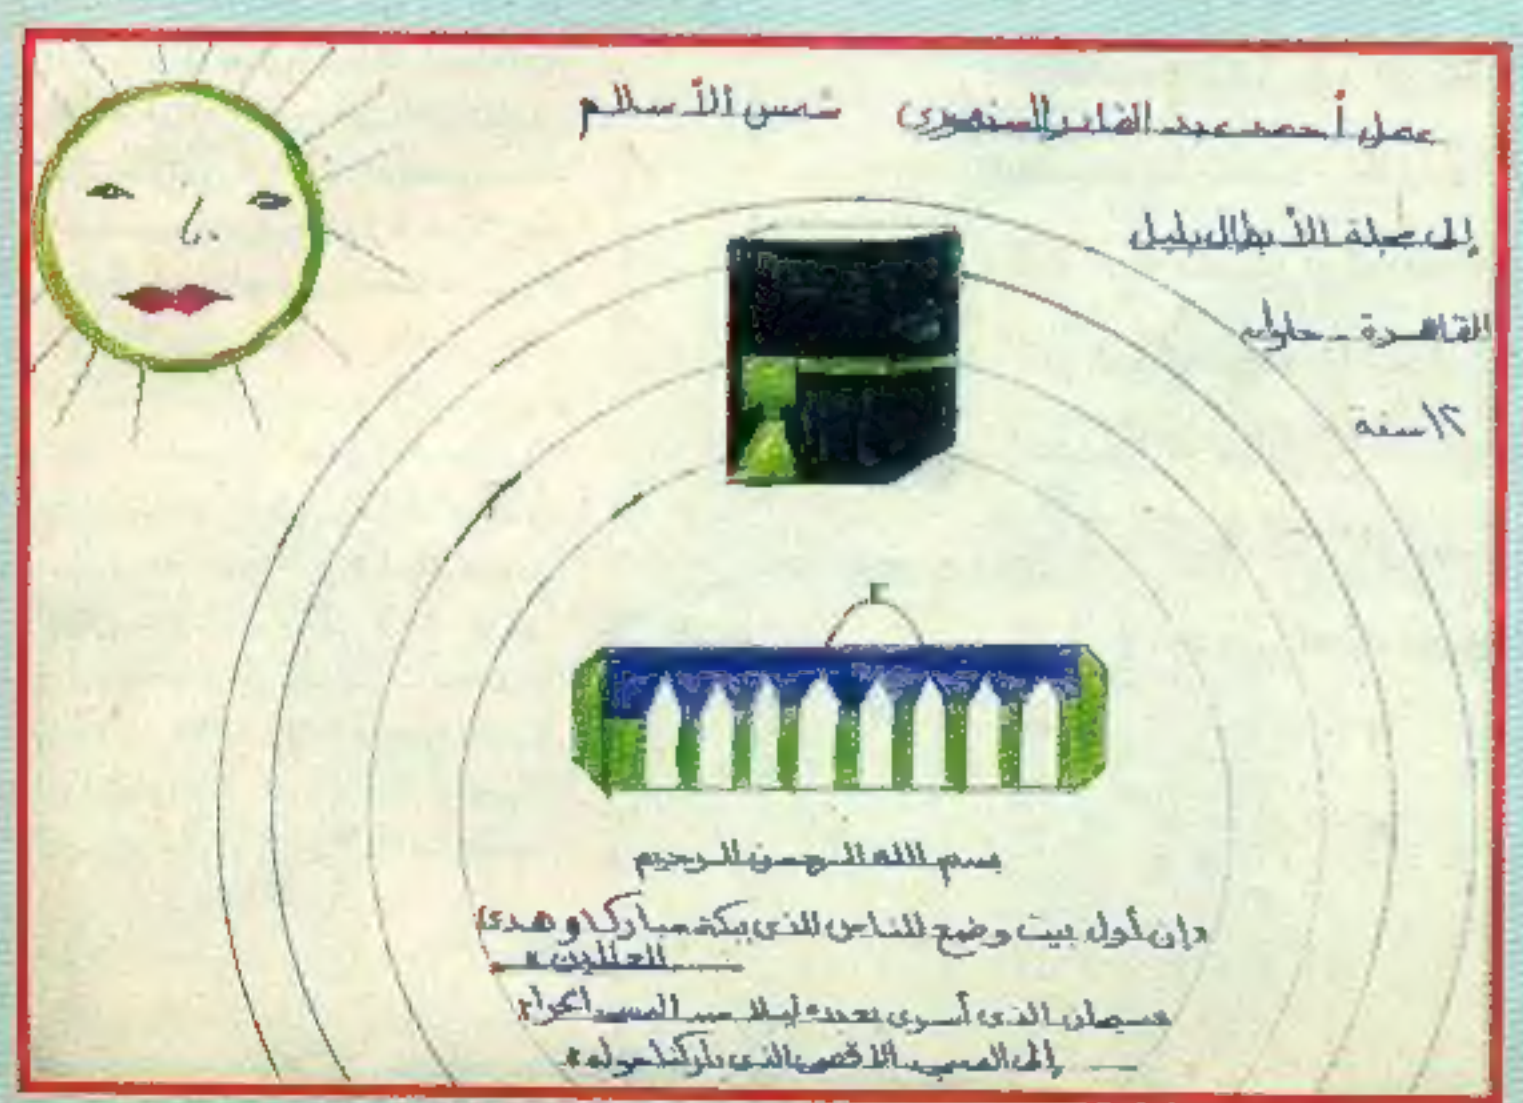 عمل أحمد عبد القادر السنهوري شمس الأسلام
إلى مجلة الأبطال بلبل
القاهرة - حلوان
١٢ سنة
بسم الله الرحمن الرحيم
«إن أول بيت وضع للناس للذى ببكة مباركا وهدى
للعالمين»
الذى أسرى بعبده ليلا من المسجد الحرام
إلى المسجد الاقصى الذى باركنا حوله»